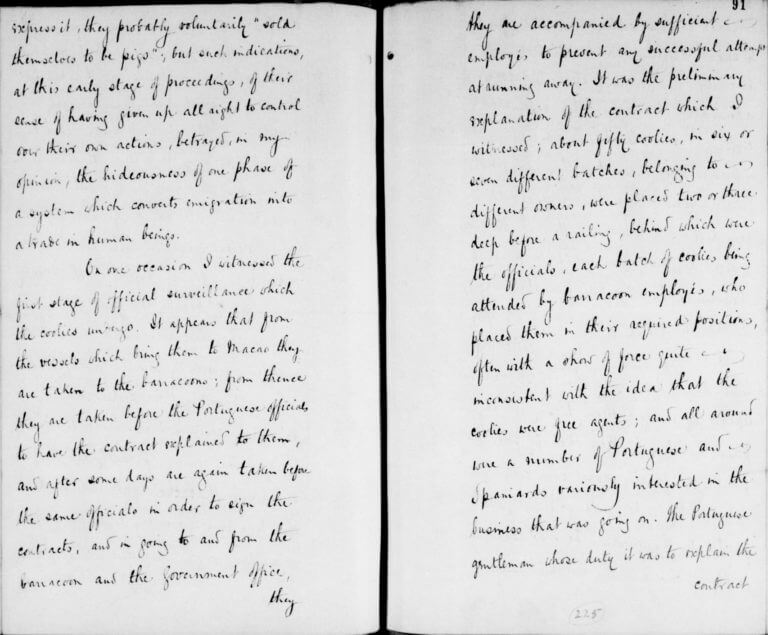 express it, they probably voluntarily "sold
themselves to be pigs"; but such indications,
at this early stage of proceedings, of their
sense of having given up all right to control
over their own actions, betrayed, in my
opinion, the hideousness of one phase of
a system which converts emigration into
a trade in human beings.
On one occasion I witnessed the
first stage of official surveillance which
the coolies undergo. It appears that from
the vessels which bring them to Macao they
are taken to the barracoons; from thence
they are taken before the Portuguese officials
to have the contract explained to them,
and after some days are again taken before
the same officials in order to sign the
contracts, and in going to and from the
barracoon and the Government Office,
they
91
they are accompanied by sufficient
employés to prevent any successful attempt
at running away. It was the preliminary
explanation of the contract which I
witnessed; about fifty coolies, in six or
seven different batches, belonging to
different owners, were placed two or three
deep before a railing, behind which were
the officials, each batch of coolies being
attended by barracoon employés, who
placed them in their required positions,
often with a show of force quite
inconsistent with the idea that the
coolies were free agents; and all around
were a number of Portuguese and
Spaniards variously interested in the
business that was going on. The Portuguese
gentleman whose duty it was to explain the
contract
(225)